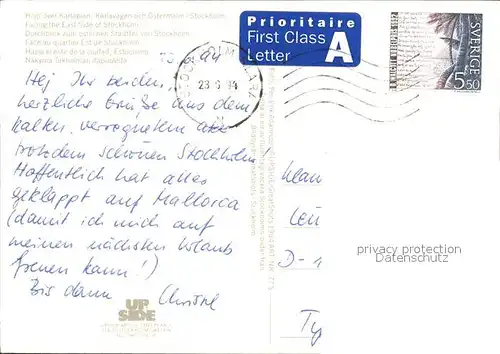 Högt över Karlaplan, Karlavägen och Östermalm i Stockholm
Facing the East-Side of Stockholm
Durchblick zum östlichen Stadtteil von Stockholm
Face au quartier Est de Stockholm
Näkymä Tukholman
Prioritaire
First Class
Letter
A
SVERIGE
5.50
23 6 94
Hej Ihr beiden,
herzliche Grüße aus dem
kalten, verregneten aber
trotzdem schönen Stockholm!
Hoffentlich hat alles
geklappt auf Mallorca
(damit ich mich auf
meinen nächsten Urlaub
freuen kann!)
Bis dann Christel
UP
SIDE
Klau
Leu
D-
Ty
privacy protection
Datenschutz